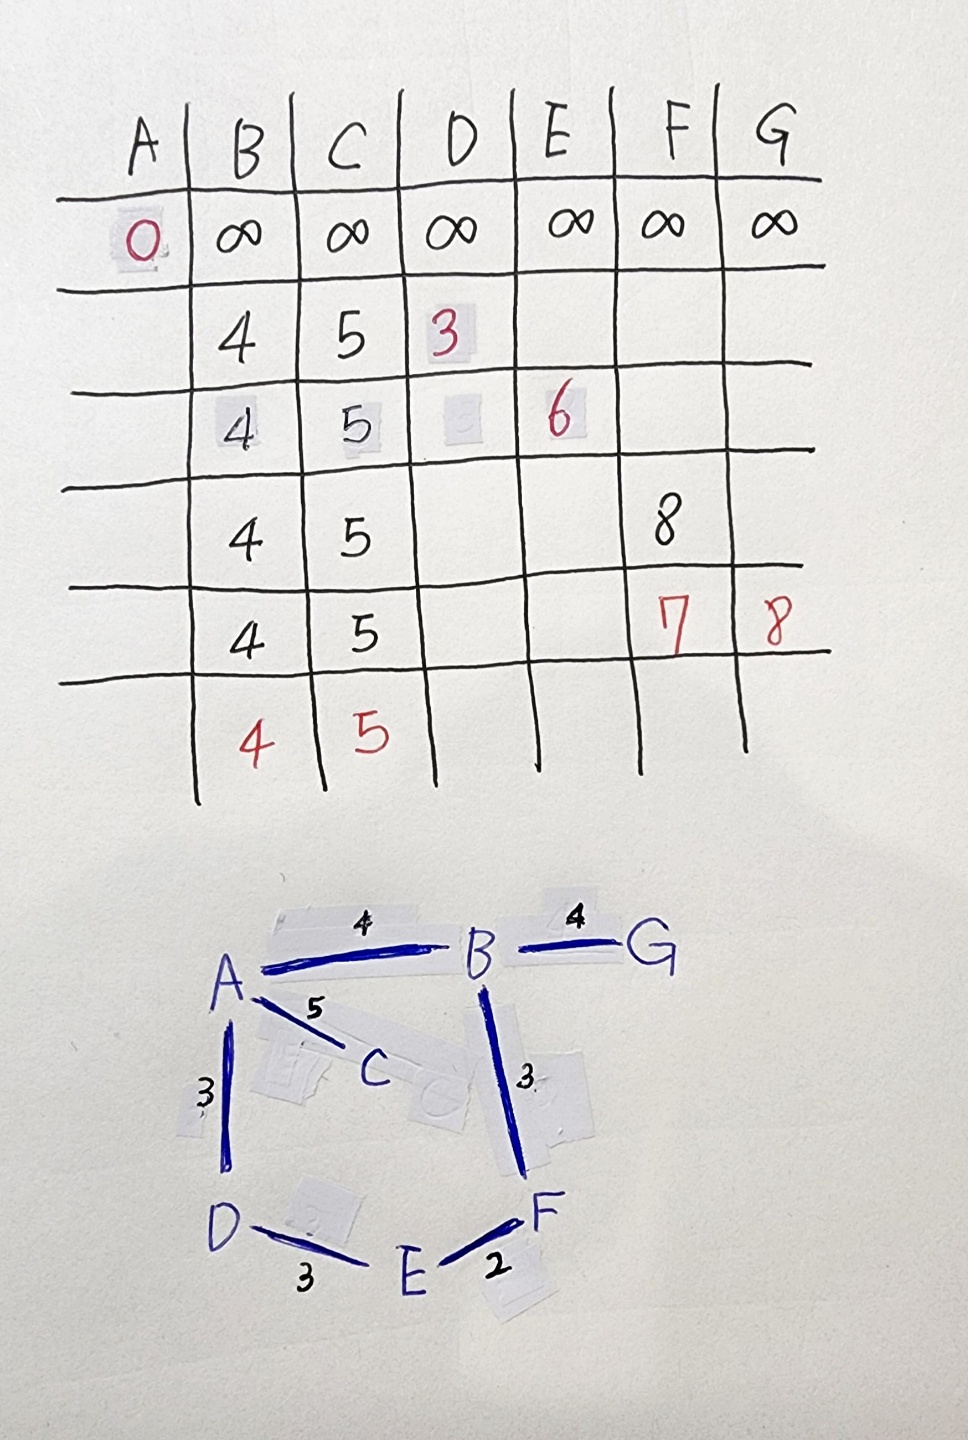 A B C D E F G
0 ∞ ∞ ∞ ∞ ∞ ∞
4 5 3
4 5 6
4 5 8
4 5 7 8
4 5
4 4
A B G
5
C
3 3
D F
3 E 2